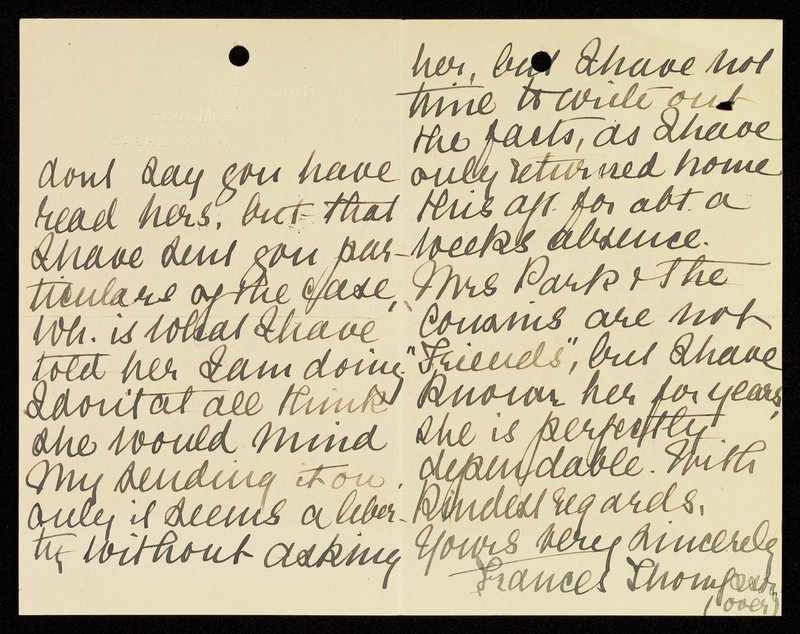 dont say you have
read hers, but that
I have sent you par-
ticulars of the Case,
wh. is what I have
told her I am doing.
I don't at all think
she would mind
my sending it on,
only it seems a liber-
ty without asking
her, but I have not
time to write out
the facts, as I have
only returned home
this aft. for abt. a
weeks absence.
Mrs Park & the
Cousins are not
"Friends", but I have
known her for years,
she is perfectly
dependable. With
kindest regards,
Yours very sincerely
Frances Thompson
(over)